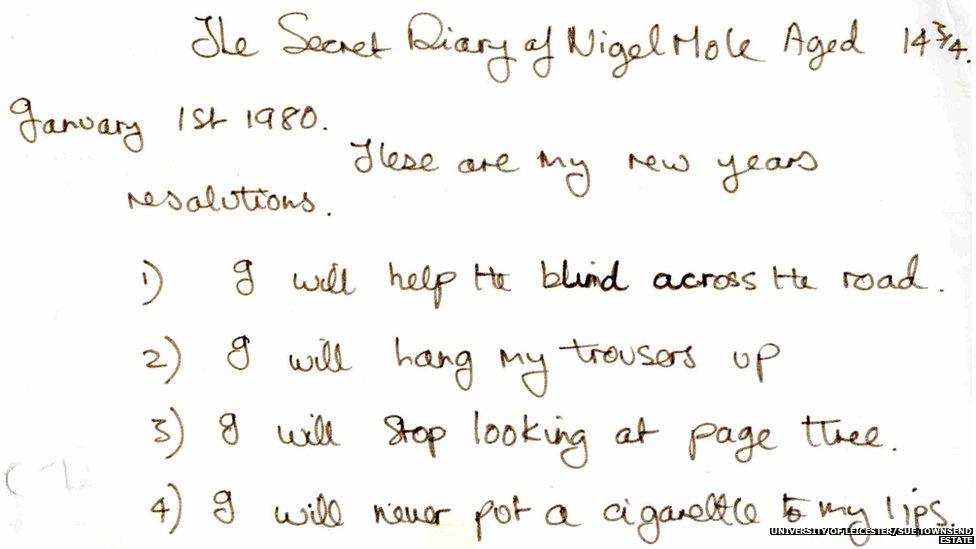 The Secret Diary of Nigel Mole Aged 14 3/4.
January 1st 1980.
These are my new years
resolutions.
1) I will help the blind across the road.
2) I will hang my trousers up
3) I will stop looking at page three.
4) I will never put a cigarette to my lips.
UNIVERSITY OF LEICESTER/SUE TOWNSEND
ESTATE